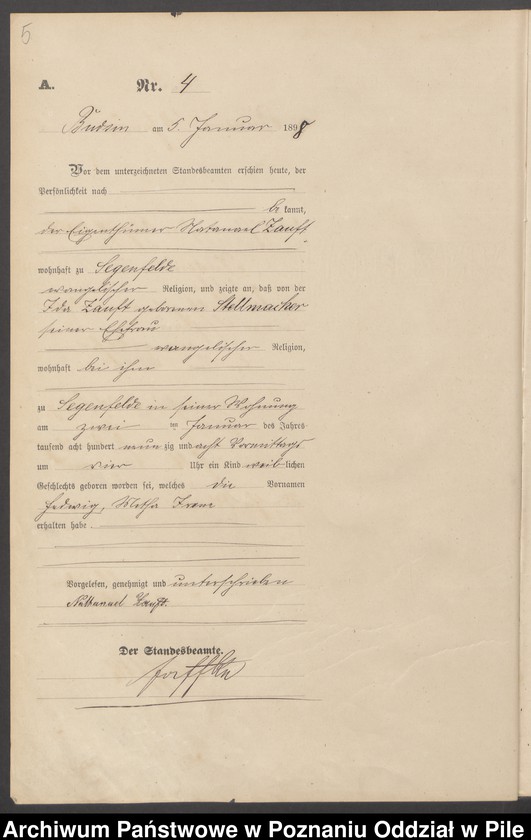 5
A. Nr. 4
Budsin am 5. Januar 1898
Vor dem unterzeichneten Standesbeamten erschien heute, der
Persönlichkeit nach
be kannt,
der Eigenthümer Natanael Zauft
wohnhaft zu Segenfelde
evangelischer Religion, und zeigte an, daß von der
Ida Zauft geborenen Stellmacher
seiner Ehefrau
evangelischer Religion,
wohnhaft bei ihm
zu Segenfelde in seiner Wohnung
am zwei ten Januar des Jahres
tausend acht hundert neun zig und acht Vormittags
um vier Uhr ein Kind weib lichen
Geschlechts geboren worden sei, welches die Vornamen
Hedwig, Metha
erhalten habe.
Vorgelesen, genehmigt und unterschrieben
Nathanael Zauft.
Der Standesbeamte.
Archiwum Państwowe w Poznaniu Oddział w Pile